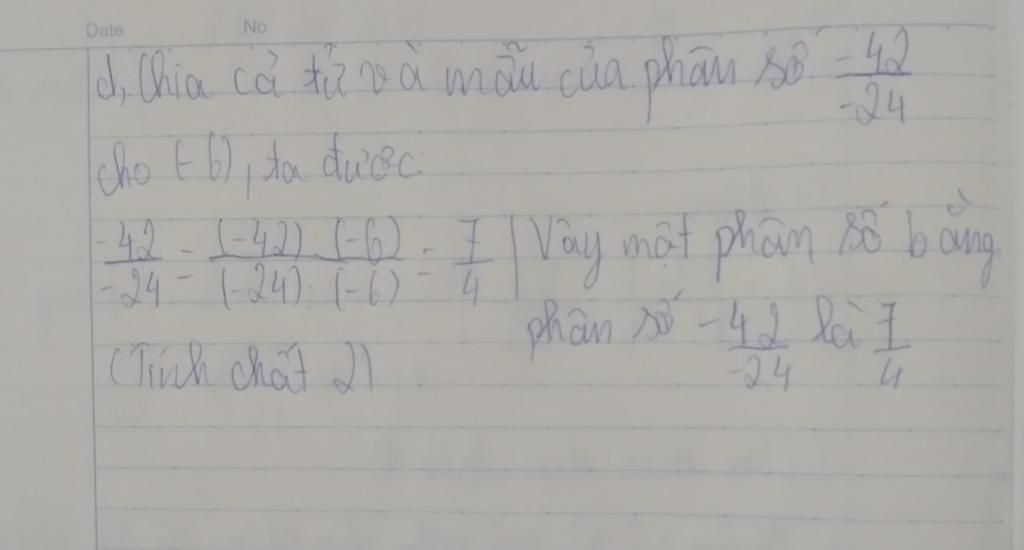 Date No.
d, Chia cả tử và mẫu của phân số \frac{-42}{-24}
cho (-6), ta được:
\frac{-42}{-24} = \frac{(-42):(-6)}{(-24):(-6)} = \frac{7}{4} | Vậy một phân số bằng
phân số \frac{-42}{-24} là \frac{7}{4}
(Tính chất 2)